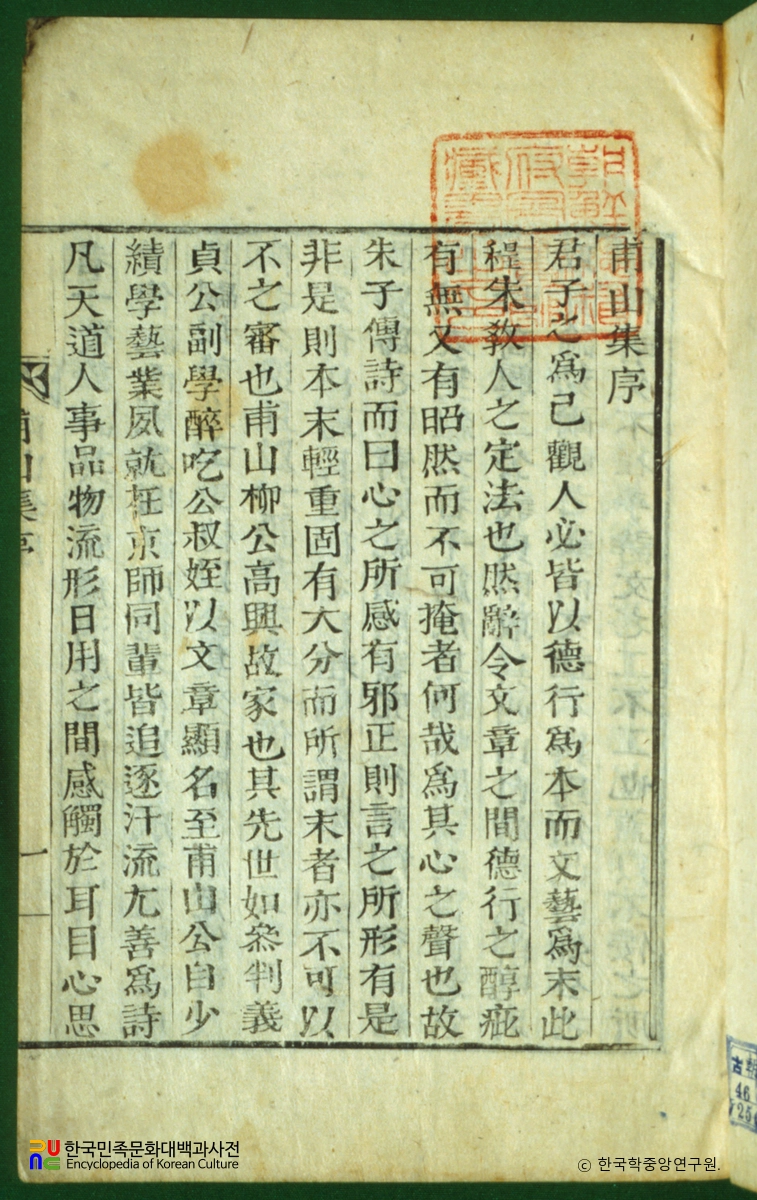 甫山集序
君子之爲己觀人必皆以德行爲本而文藝爲末此
程朱敎人之定法也然辭令文章之間德行之醇疵
有無又有昭然而不可掩者何哉爲其心之聲也故
朱子傳詩而曰心之所感有邪正則言之所形有是
非是則本末輕重固有大分而所謂末者亦不可以
不之審也甫山柳公高興故家也其先世如叅判義
貞公副學醉吃公叔姪以文章顯名至甫山公自少
績學藝業夙就在京師同輩皆追逐汗流尤善爲詩
凡天道人事品物流形日用之間感觸於耳目心思
甫山集序
一
古朝
46
한국민족문화대백과사전
Encyclopedia of Korean Culture
© 한국학중앙연구원.